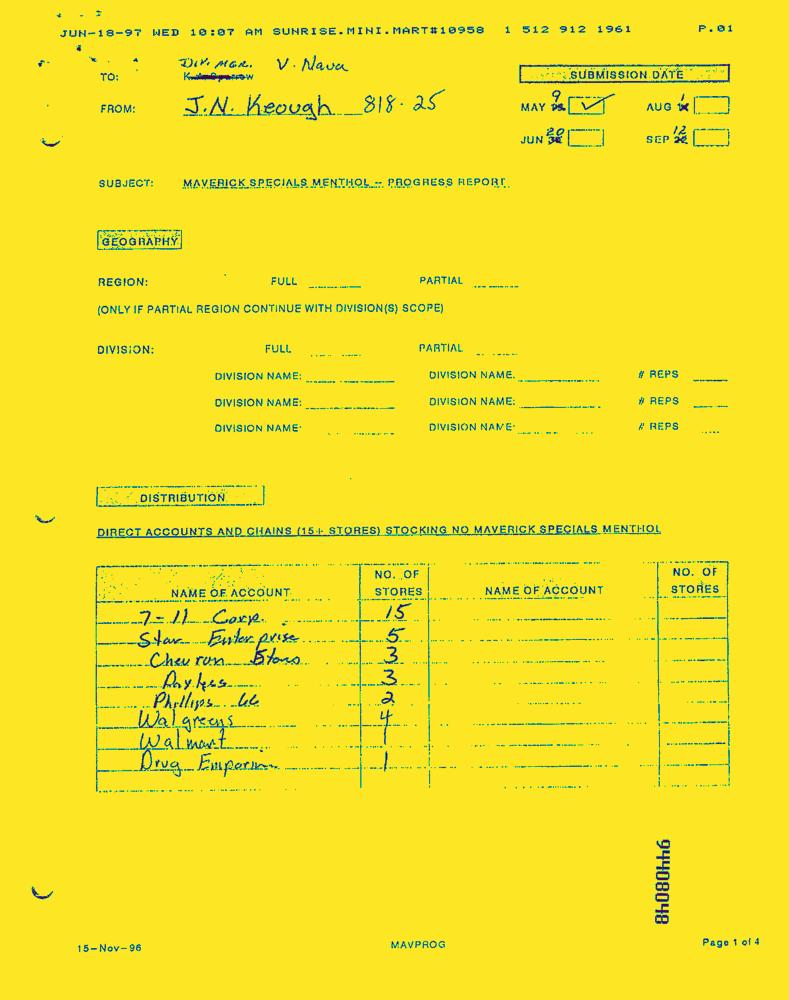 JUN-18-97 WED 10:07 AM SUNRISE.MINI.MART#10958 1 512 912 1961 P.01
DIV. MGR. V. Nava
TO:
SUBMISSION DATE
FROM: J.N. Keough 818-25
MAY 9 AUG 1
JUN 20 SEP 12
SUBJECT: MAVERICK SPECIALS MENTHOL -- PROGRESS REPORT
GEOGRAPHY
REGION: FULL PARTIAL
(ONLY IF PARTIAL REGION CONTINUE WITH DIVISION(S) SCOPE)
DIVISION: FULL PARTIAL
DIVISION NAME: DIVISION NAME: # REPS
DIVISION NAME: DIVISION NAME: # REPS
DIVISION NAME: DIVISION NAME: # REPS
DISTRIBUTION
DIRECT ACCOUNTS AND CHAINS (15+ STORES) STOCKING NO MAVERICK SPECIALS MENTHOL
NAME OF ACCOUNT NO. OF STORES NAME OF ACCOUNT NO. OF STORES
7-11 Corp. 15
Star Enterprise 5
Chevron 3
3
Phillips 66 2
Walgreens 4
Walmart 1
Drug 1
94408048
15-Nov-96 MAVPROG Page 1 of 4